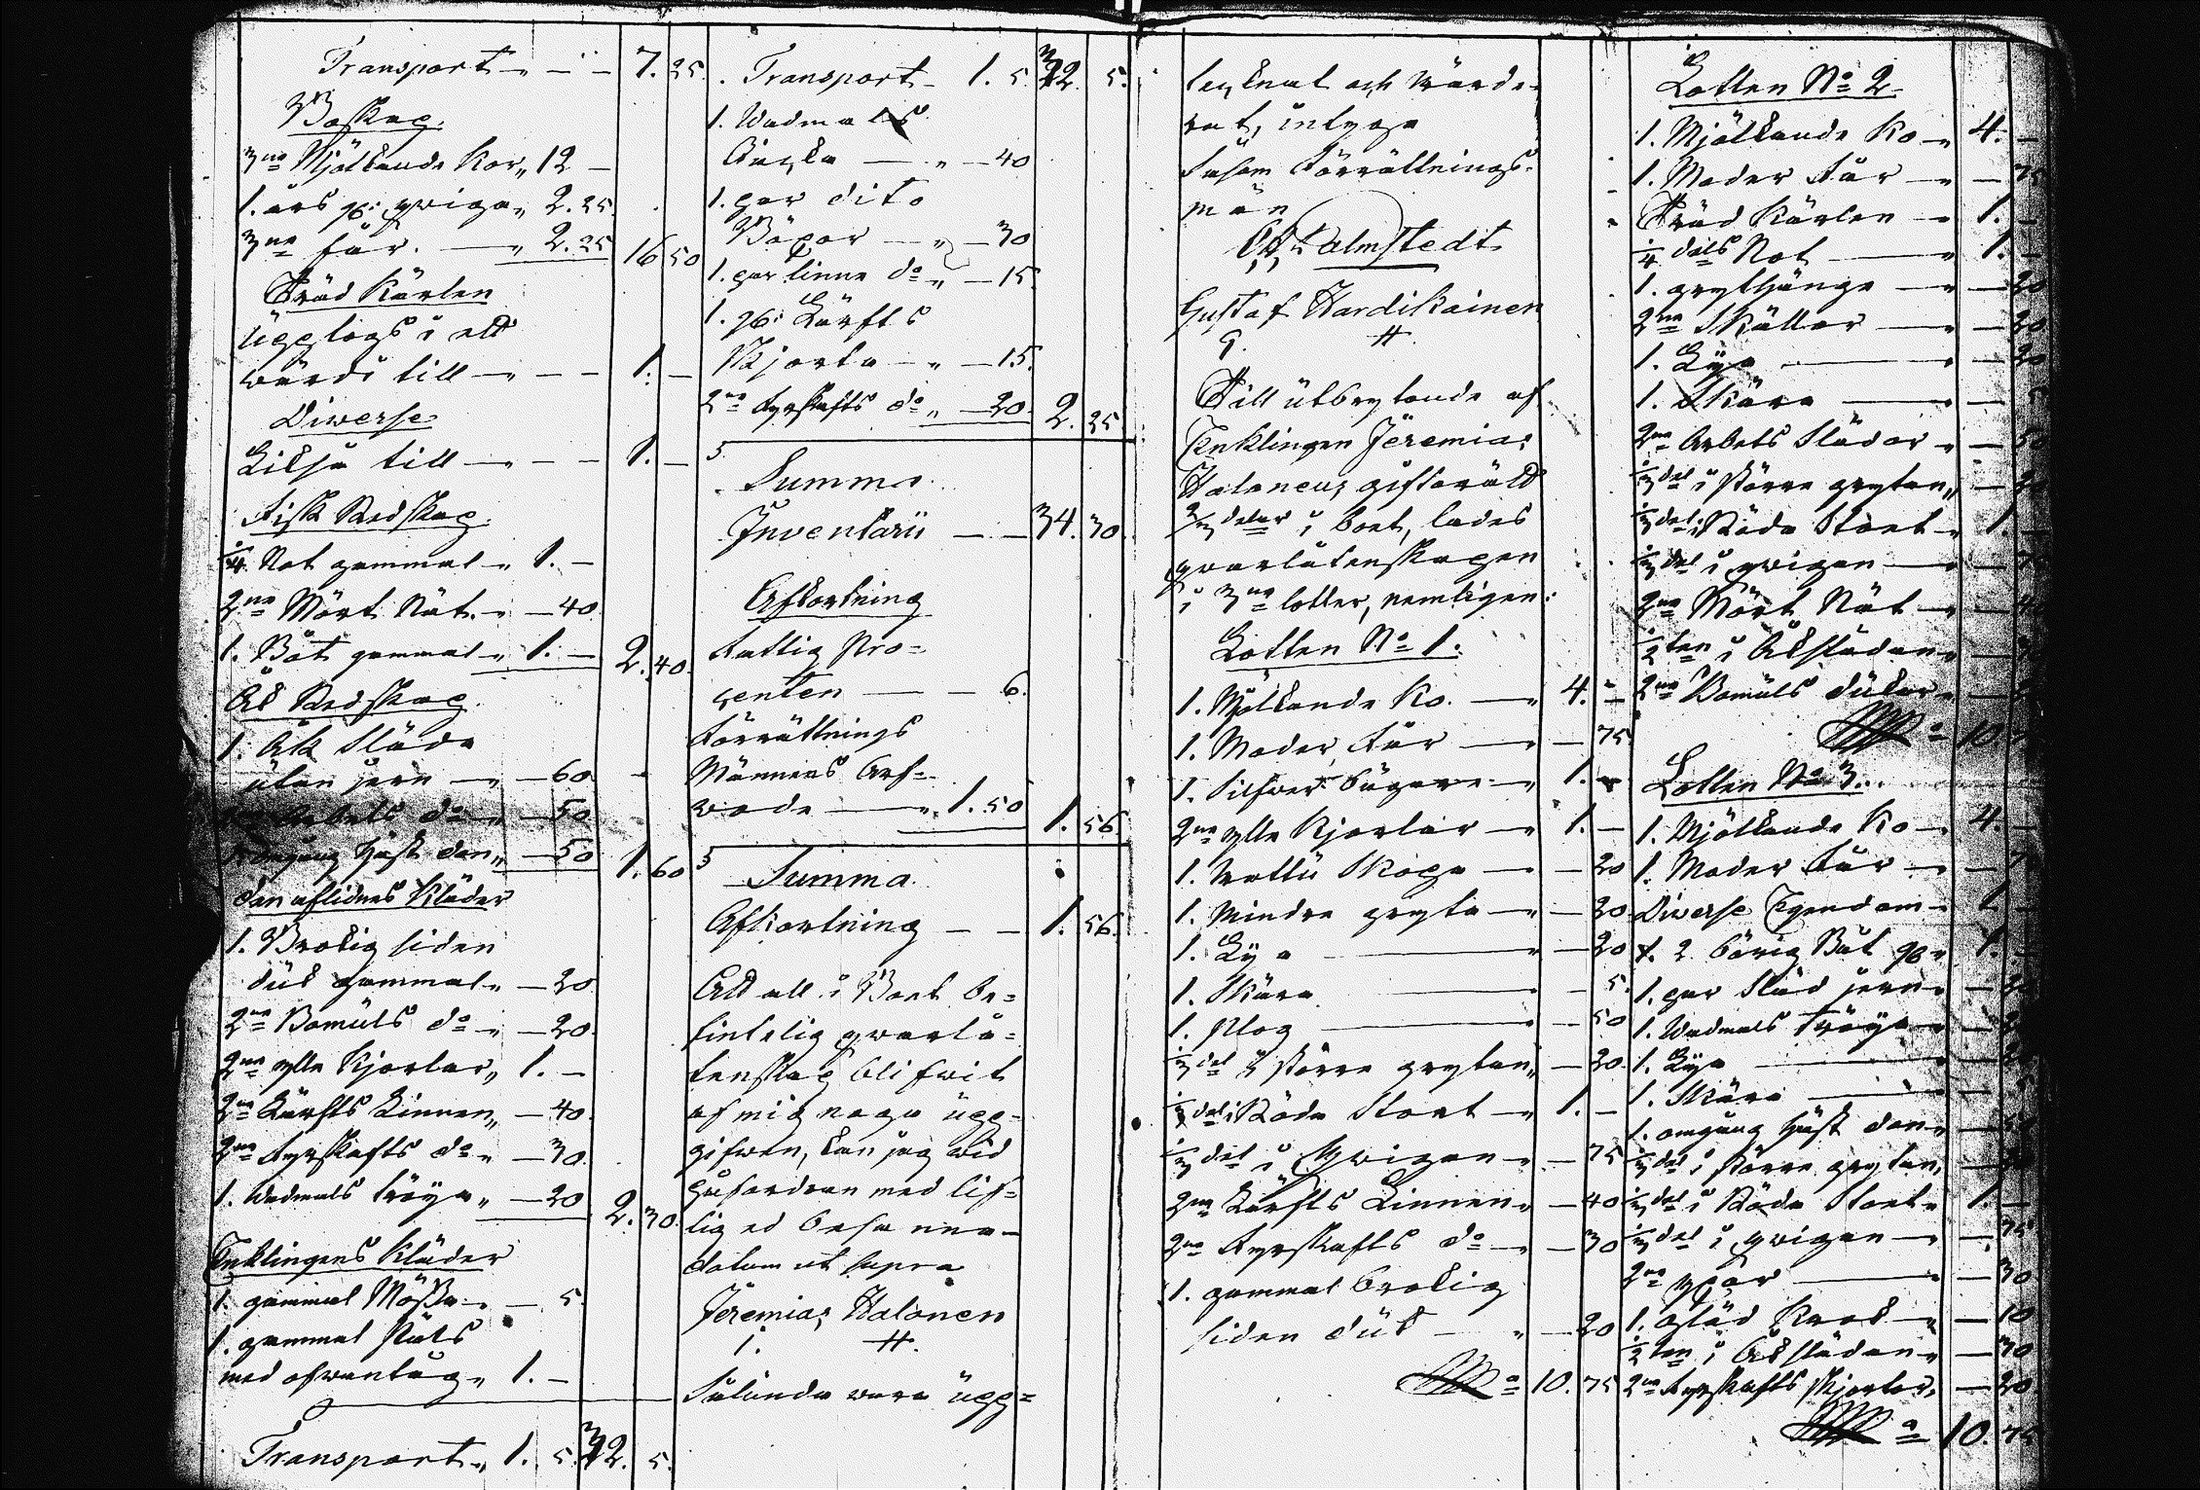 Transport „ — 7. 25.
Boskap.
3ne Mjölkande Kor „ 12 —
1. års gl: qwiga „ 2. 25.
3ne får. — „ 2. 25 16 50
Träd Kärlen
upptogs i ett
wärde till — „ — — 1. —
Diwerse
Likså till — „ — — 1. —
Fisk Redskap.
1/4 Not gammal „ 1. —
2ne Mört Nät „ — 40.
1. Båt gammal „ 1. — 2. 40.
Åk Redskap
1. Åk Släde
utan jern — „ — 60
Arbets do — „ — 50
omgång häst don „ — 50 1. 60
den aflidnes Kläder
1. Brokig siden
duk gammal „ — 20
2ne Bomuls do „ — 20.
2ne ylle Kjortlar „ 1. —
2ne Lärfts Linnen „ — 40.
2ne Fyrskafts do „ — 30.
1. Wadmals tröya „ — 20 2. 30.
Enklingens Kläder
1. gammal Mössa — 5.
1. gammal Päls
med ofwantåg „ 1. —
Transport „ 1. 5. 32. 5.
Transport 1. 5. 32. 5.
1. Wadmals
— „ — 40
1. par dito
Böxor — „ — 30
1. par linne do „ — 15.
1. gl: Lärfts
Skjorta — „ — 15.
2ne Fyrskafts do „ — 20. 2. 25.
Summa
Inventarii — — 34. 30.
Afkortning
Fattig Pro=
centen — — 6.
Förrättnings
Männens Arf=
wode — „ 1. 50 1. 56
Summa
Afkortning — — 1. 56.
Att all i Boet be=
fintelig qwarlå=
tenskap blifwit
af mig noga upp=
gifwen, kan jag wid
påfordran med lif=
lig ed besanna —
datum ut supra
Jeremias Halonen
i. #.
Sålunda wara upp=
teknat och wärde=
rat, intyga
Såsom Förrättnings=
män
Palmstedt
Gustaf Hardikainen
g. #
Till utbrytande af
Enklingen Jeremias
Halonens giftorätt
2/3 delar i boet, lades
qvarlåtenskapen
i 3ne lotter, nemligen:
Lotten No 1.
1. Mjölkande Ko. — „ 4. —
1. Moder Får — „ — 75
1. Silfwer bägare — „ 1. —
2ne ylle Kjortlar — „ 1. —
1. Wattu Skopa — „ — 20
1. Mindre gryta — „ — 20
1. Lya — „ — 20
1. Skära — „ — 5.
1. Plog — „ — 50
1/3 del i större grytan „ — 20.
1/3 del i Röda Stoet — „ 1. —
1/3 del i Qwigan „ — 75
2ne Lärfts Linnen „ — 40
2ne Fyrskafts do — „ — 30
1. gammal brokig
siden duk — „ — 20
= 10. 75
Lotten No 2.
1. Mjölkande Ko „ 4. —
1. Moder Får — „ — 75
Träd Kärlen — „ 1. —
1/4 dels Not — „ 1. —
1. grythänge — „ — 20
2ne Skällor — „ — 20
1. Lya — „ — 20
1. Skära — „ — 5
2ne Arbets Slädor „ — 50
1/3 del i större grytan „ — 20
1/3 del i Röda Stoet „ 1. —
1/3 del i qwigan — „ — 75
2ne Mört Nät — „ — 40
1/2 ten i Åkslädan „ — 30
2ne Bomuls dukar „ — 20
= 10. 75
Lotten No 3.
1. Mjölkande Ko „ 4. —
1. Moder Får — „ — 75
Diwerse Egendom „ 1. —
1. 2 börig Båt gl „ 1. —
1. par Släd jern „ — 20
1. Wadmals Tröya „ — 20
1. Lya — „ — 20
1. Skära — „ — 5
1. omgång häst don „ — 50
1/3 del i större grytan „ — 20
1/3 del i Röda Stoet „ 1. —
1/3 del i qwigan — „ — 75
2ne yxor — „ — 30
1. Krok — „ — 10
1/2 ten i Åkslädan „ — 30
2ne Fyrskafts Skjortor „ — 20
= 10. 75